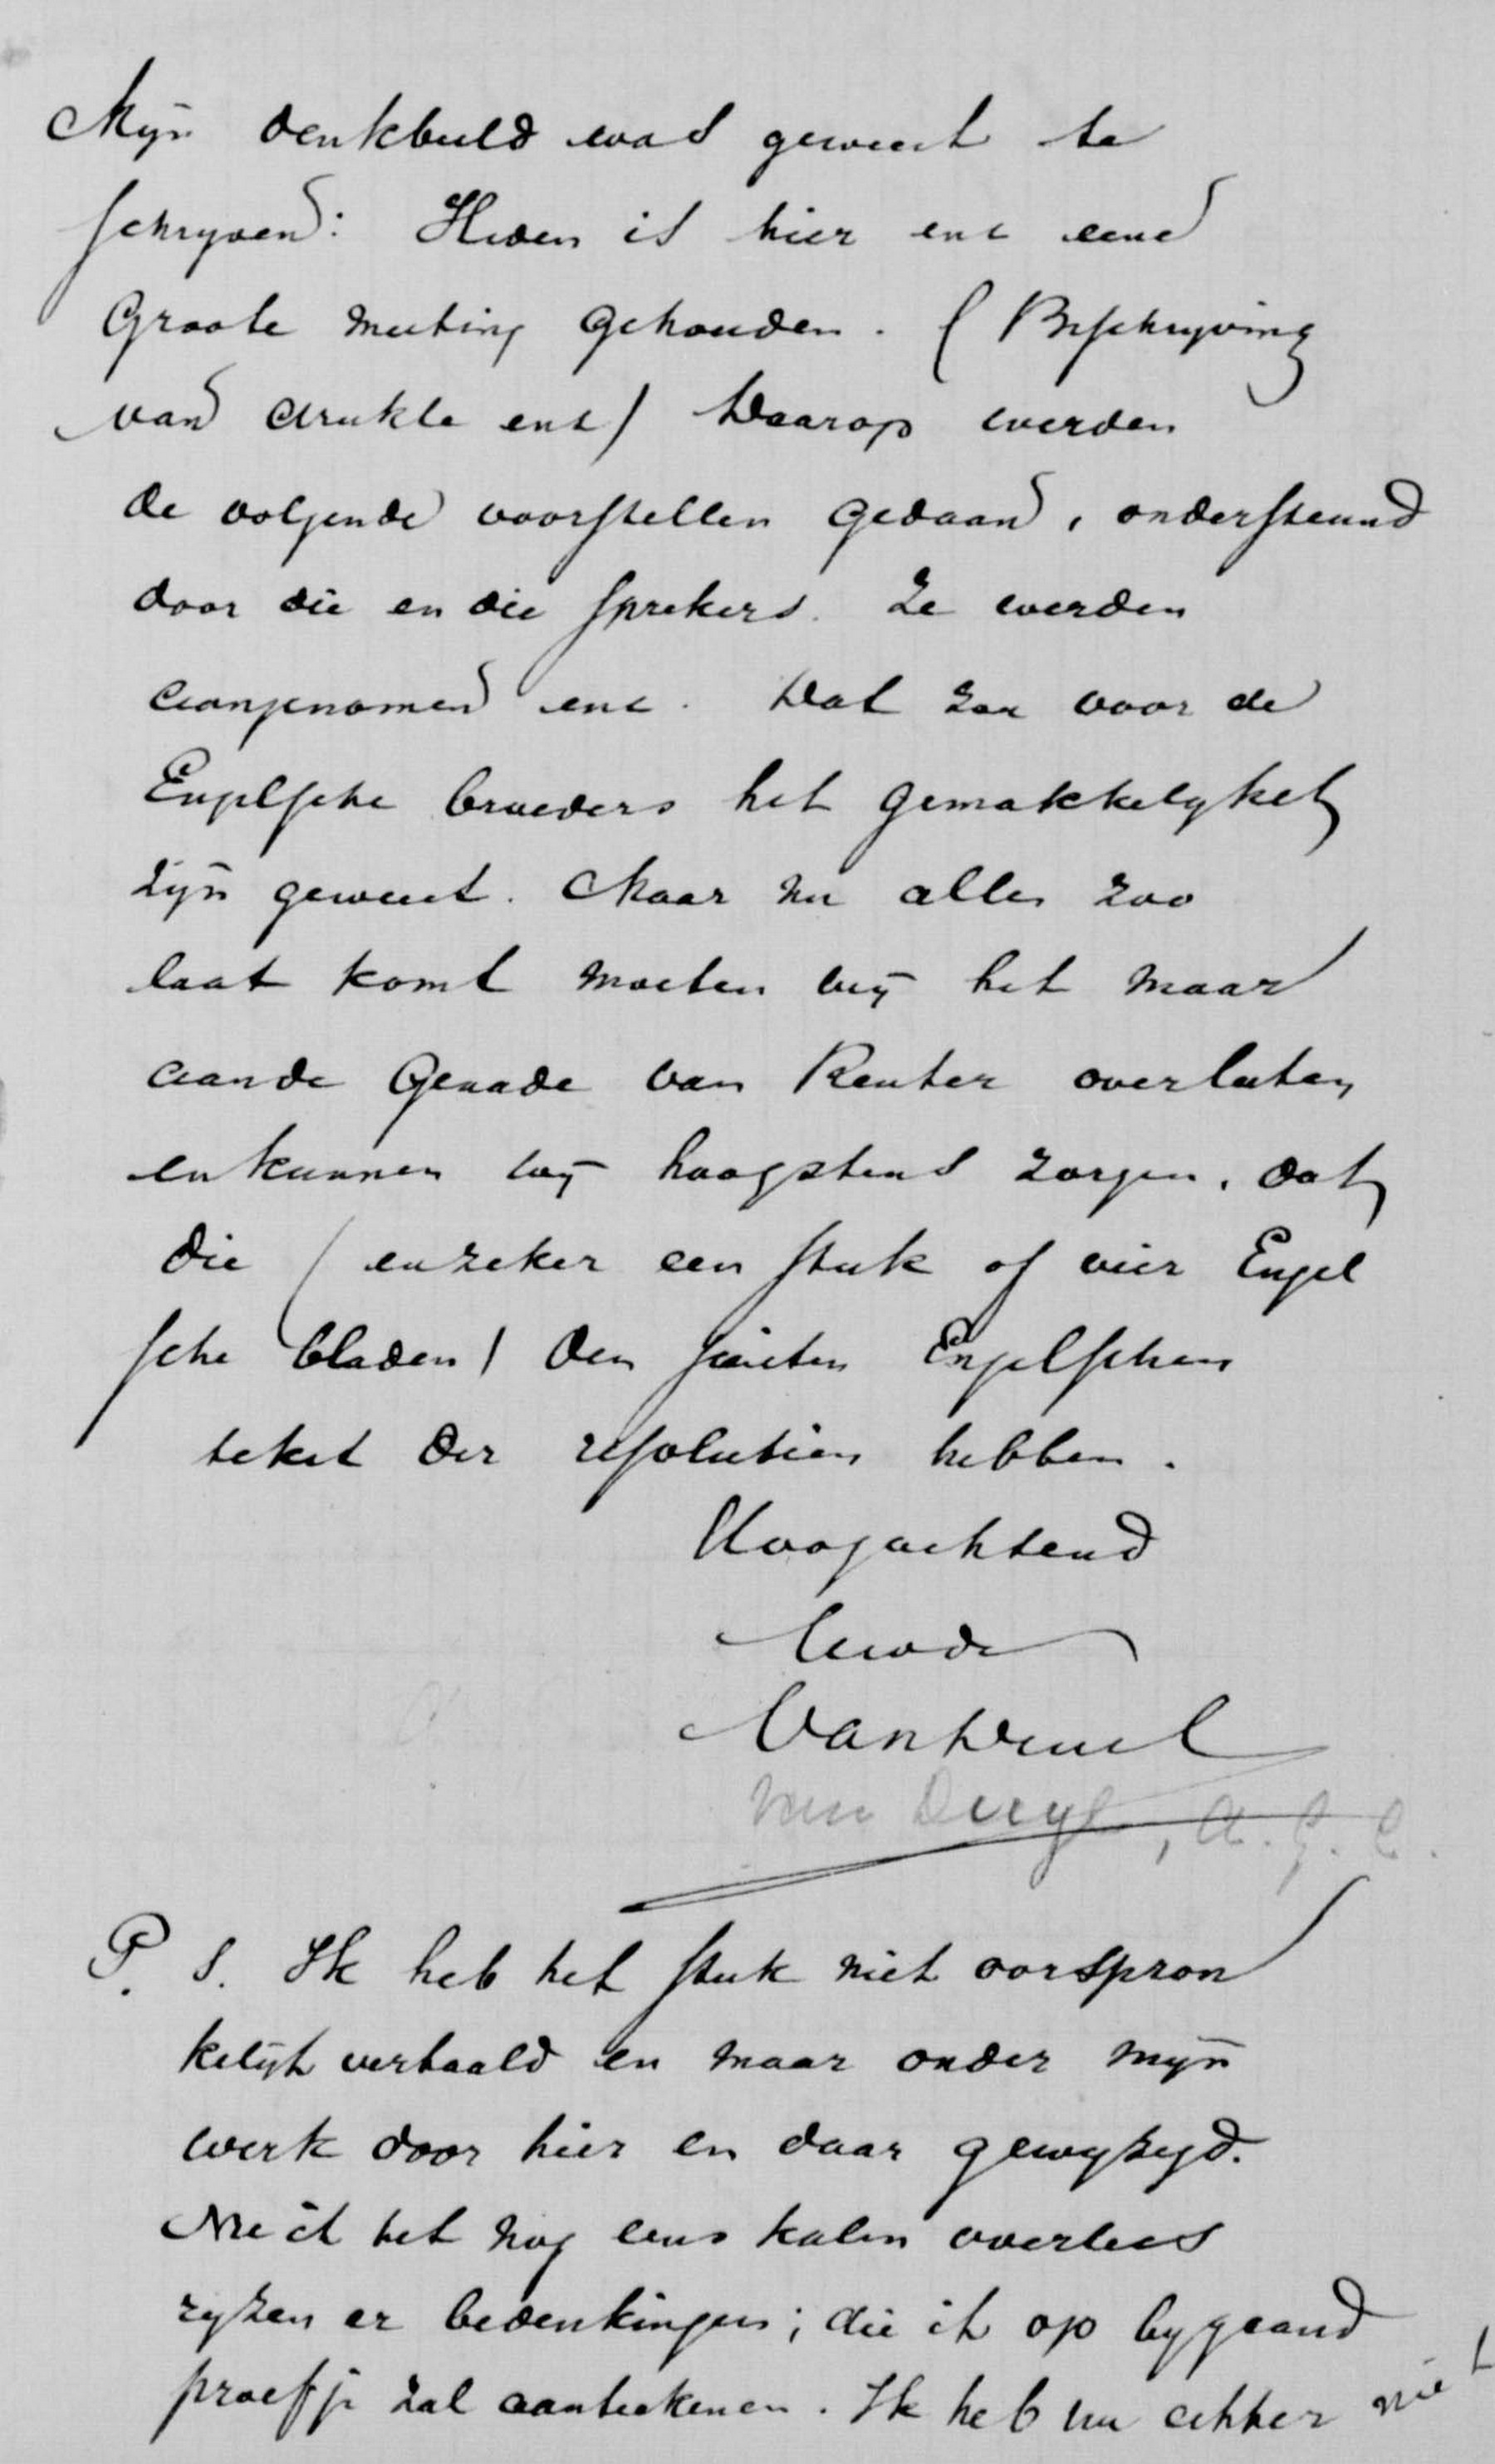 Mijn denkbeeld was geweest te
schryven: Heden is hier enz eene
Groote meeting gehouden. (Beschryving
van drukte enz) Daarop werden
de volgende voorstellen gedaan, ondersteund
door die en die sprekers. Ze werden
aangenomen enz. Dat zou voor de
Engelsche broeders het gemakkelykst
zijn geweest. Maar nu alles zoo
laat komt moeten wij het maar
aan de Genade van Reuter overlaten
en kunnen wij hoogstens zorgen, dat
die (en zeker een stuk of vier Engel
sche bladen) den juisten Engelschen
tekst der resolutien hebben.
Hoogachtend
Uwdr
Van Duyl
van Duyl, A.G.C.
P.S. Ik heb het stuk niet oorspron
kelijk vertaald en maar onder mijn
werk door hier en daar gewyzigd.
Nu ik het nog eens kalm overlees
ryzen er bedenkingen; die ik op bygaand
proefje zal aanteekenen. Ik heb nu echter niet